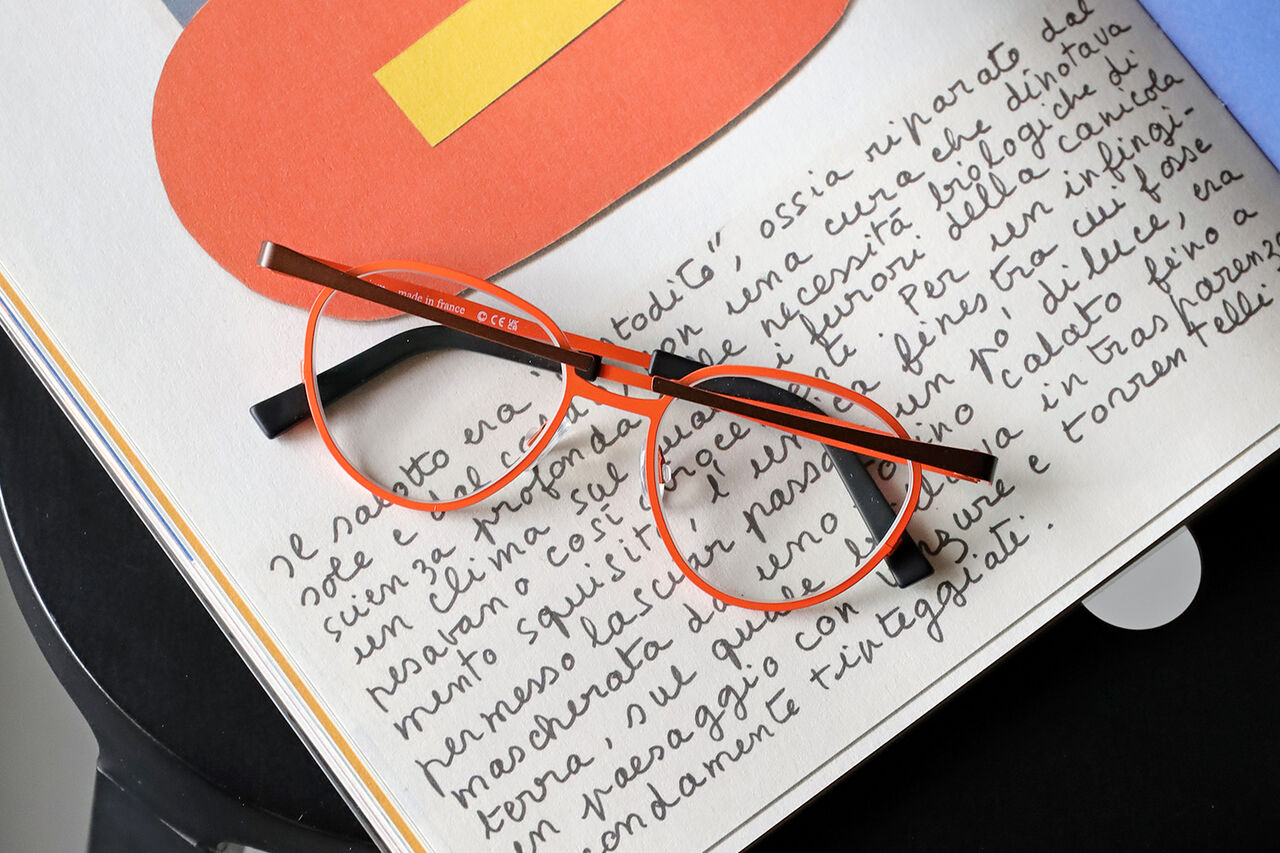 made in france
CE
Il salotto era todito”, ossia riparato dal
sole e dal con una cura che dinotava
scienza profonda delle necessità biologiche di
un clima sul quale i furori della canicola
pesavano così Per un infingi-
mento squisito, l'unica finestra cui fosse
permesso lasciar passar un po' di luce, era
mascherata da uno calato fino a
terra, sul quale in trasparenza
un paesaggio con e torrentelli
condamente tinteggiati.